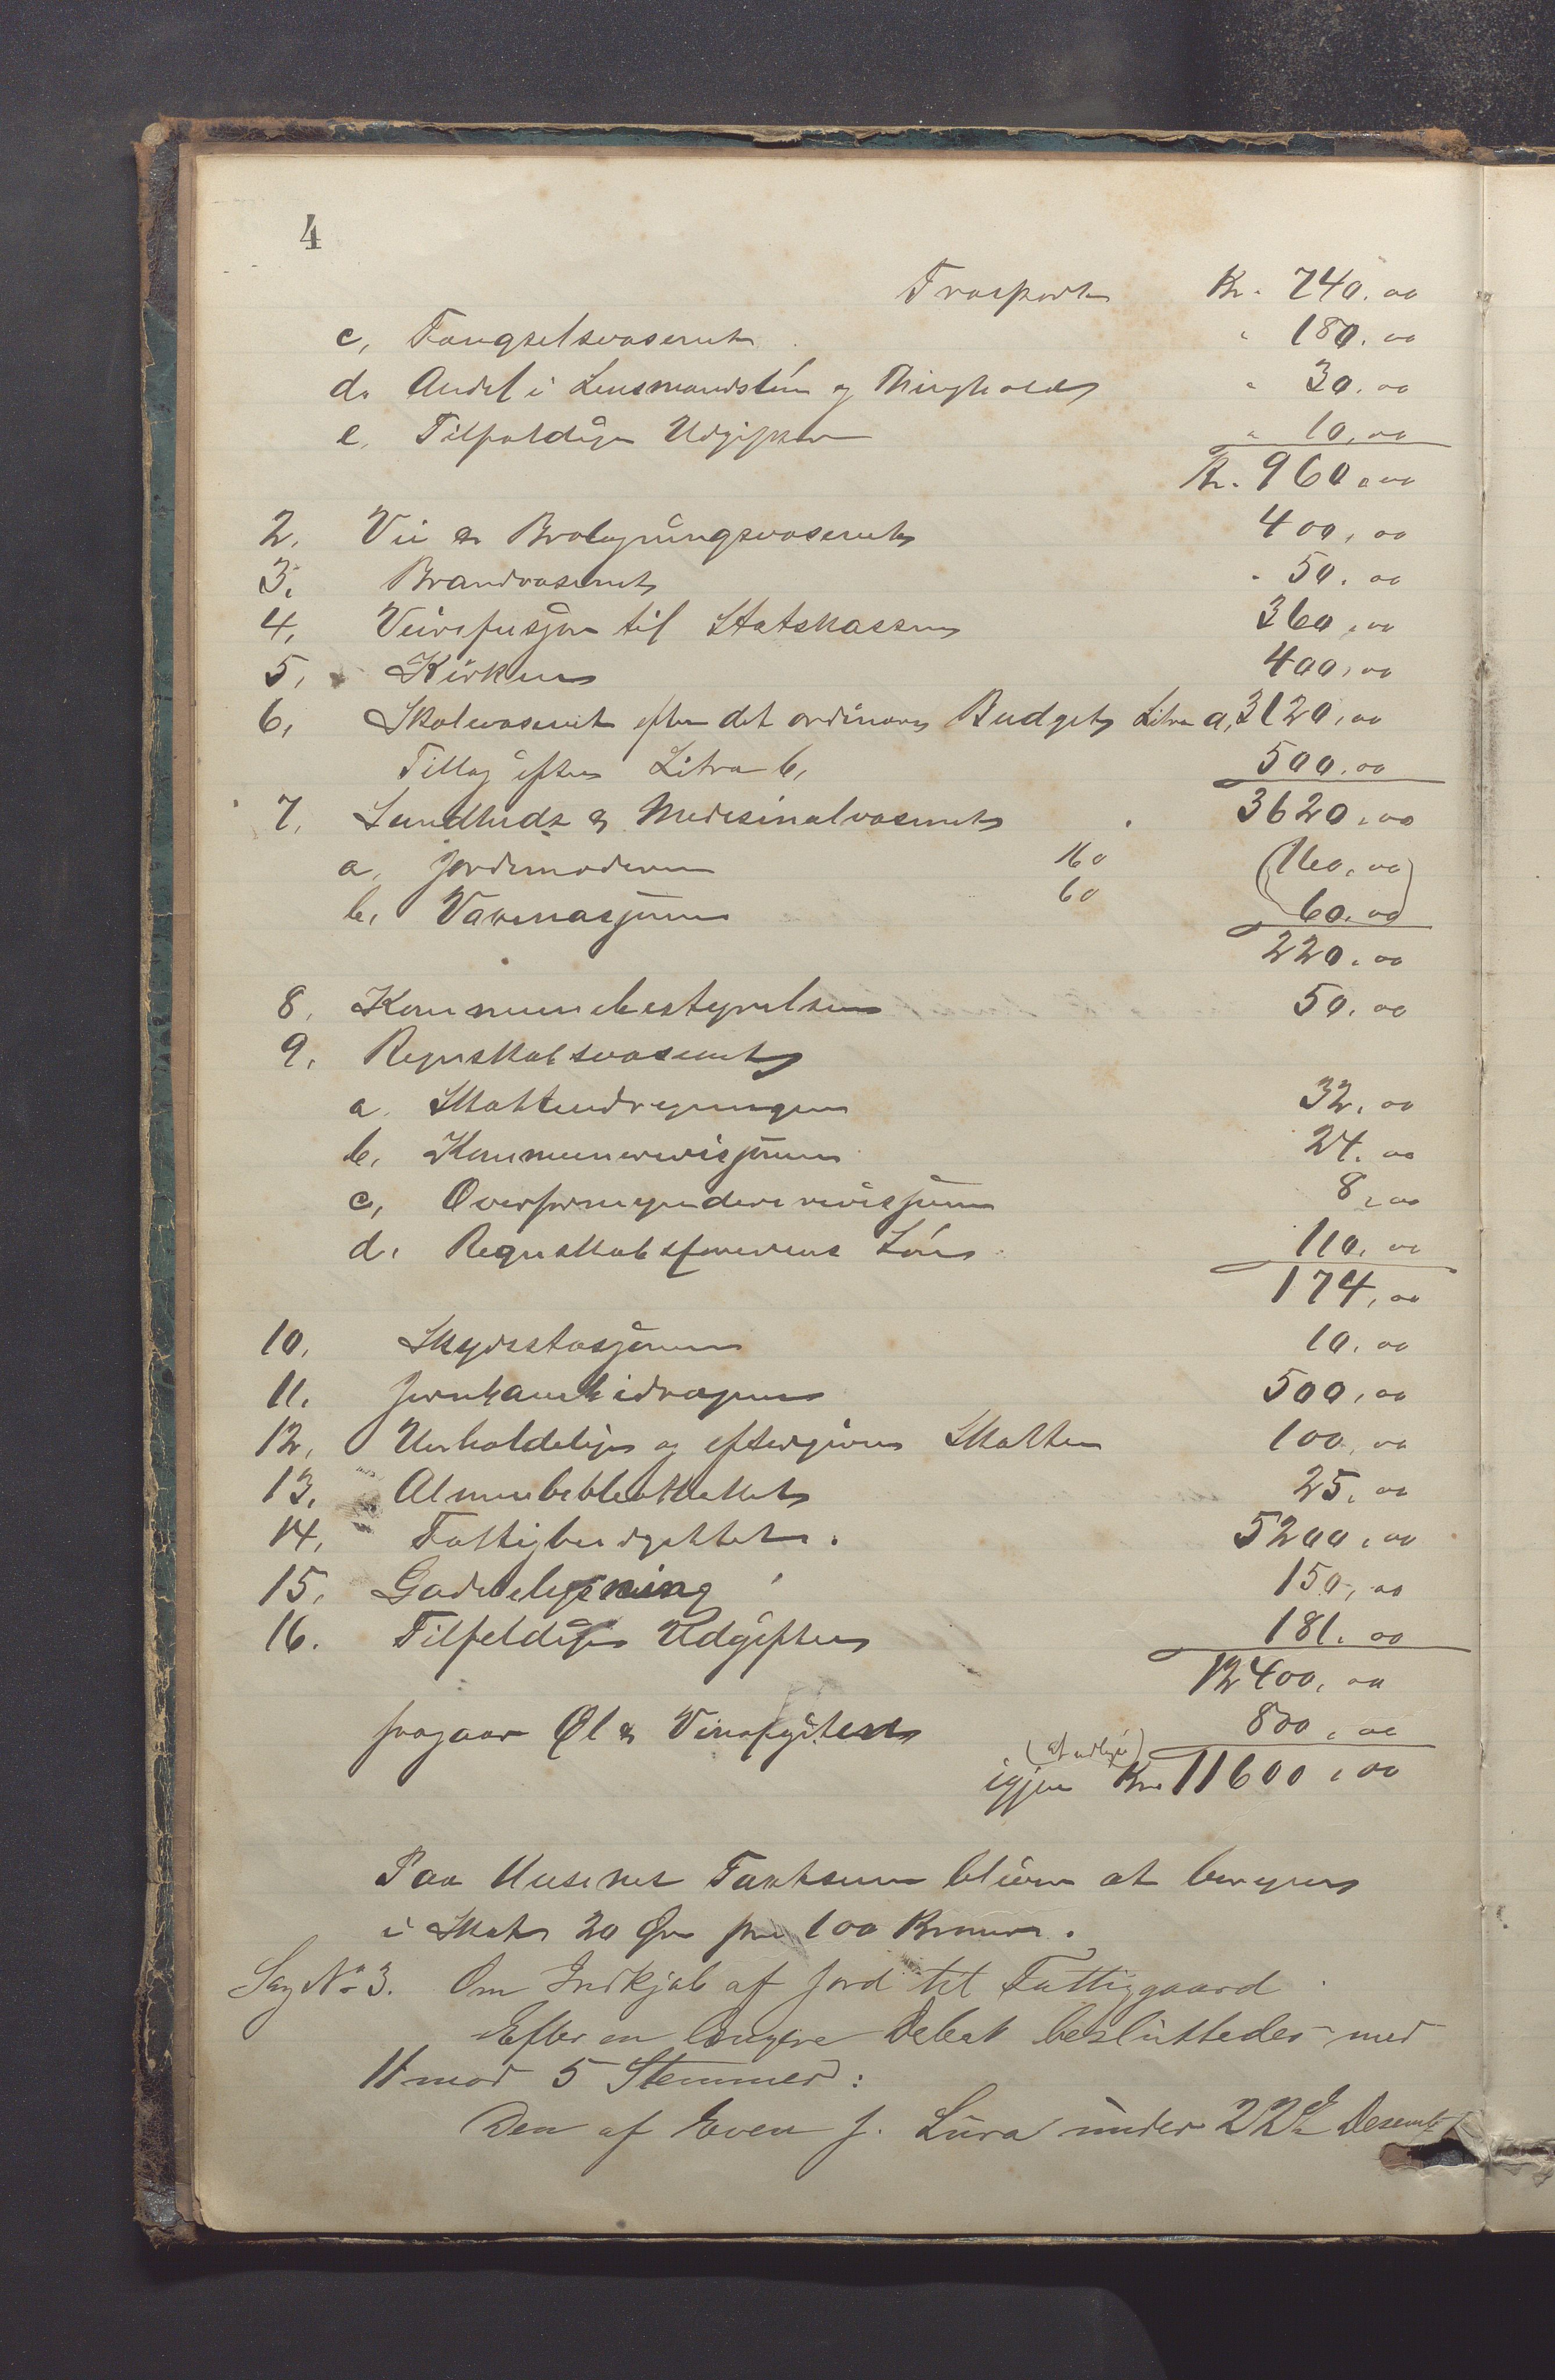 4
Trasport Kr. 740.00
c, Fængselsvæsenet " 180.00
d. Andel i Lensmandsløn og Thingholdet " 30.00
e. Tilfældige Udgifter " 10.00
Kr. 960.00
2. Vei & Brolægningsvæsenet 400,00
3. Brandvæsenet " 50.00
4, Veirefusjon til Statskassen 360,00
5, Kirken 400,00
6, Skolevæsenet efter det ordinære Budget Litra a, 3120,00
Tillæg efter Litra b, 500.00
7, Sundheds & Medisinalvæsenet 3620.00
a, Jordemoderen 160 (160,00)
b, Vaksinasjonen 60 (60.00)
220.00
8, Kommunebestyrelsen 50.00
9, Regnskabsvæsenet
a. Skatteudregningen 32,00
b, Kommunerevisjonen 24.00
c, Overformynderirevisjonen 8,00
d. Regnskabsførerens Løn 110,00
174,00
10, Skydsstasjonen 10.00
11. Jernbanebidraget 500,00
12, Uerholdelige og eftergivne Skatter 100,00
13. Almuebibliotheket 25,00
14, Fattigbudgettet. 5200,00
15, Gadebelysning 150,00
16. Tilfeldige Udgifter 181.00
12400,00
fragaar Øl & Vinafgiten 800,00
igjen (at udligne) Kr. 11600,00
Paa Husenes Taxtsum bliver at beregne
i Skat 20 Øre pr 100 Kroner.
Sag No 3. Om Indkjøb af Jord til Fattiggaard
Efter en længere Debat besluttedes med
11 mod 5 Stemmer:
Den af Even J. Lura under 22de Desemb